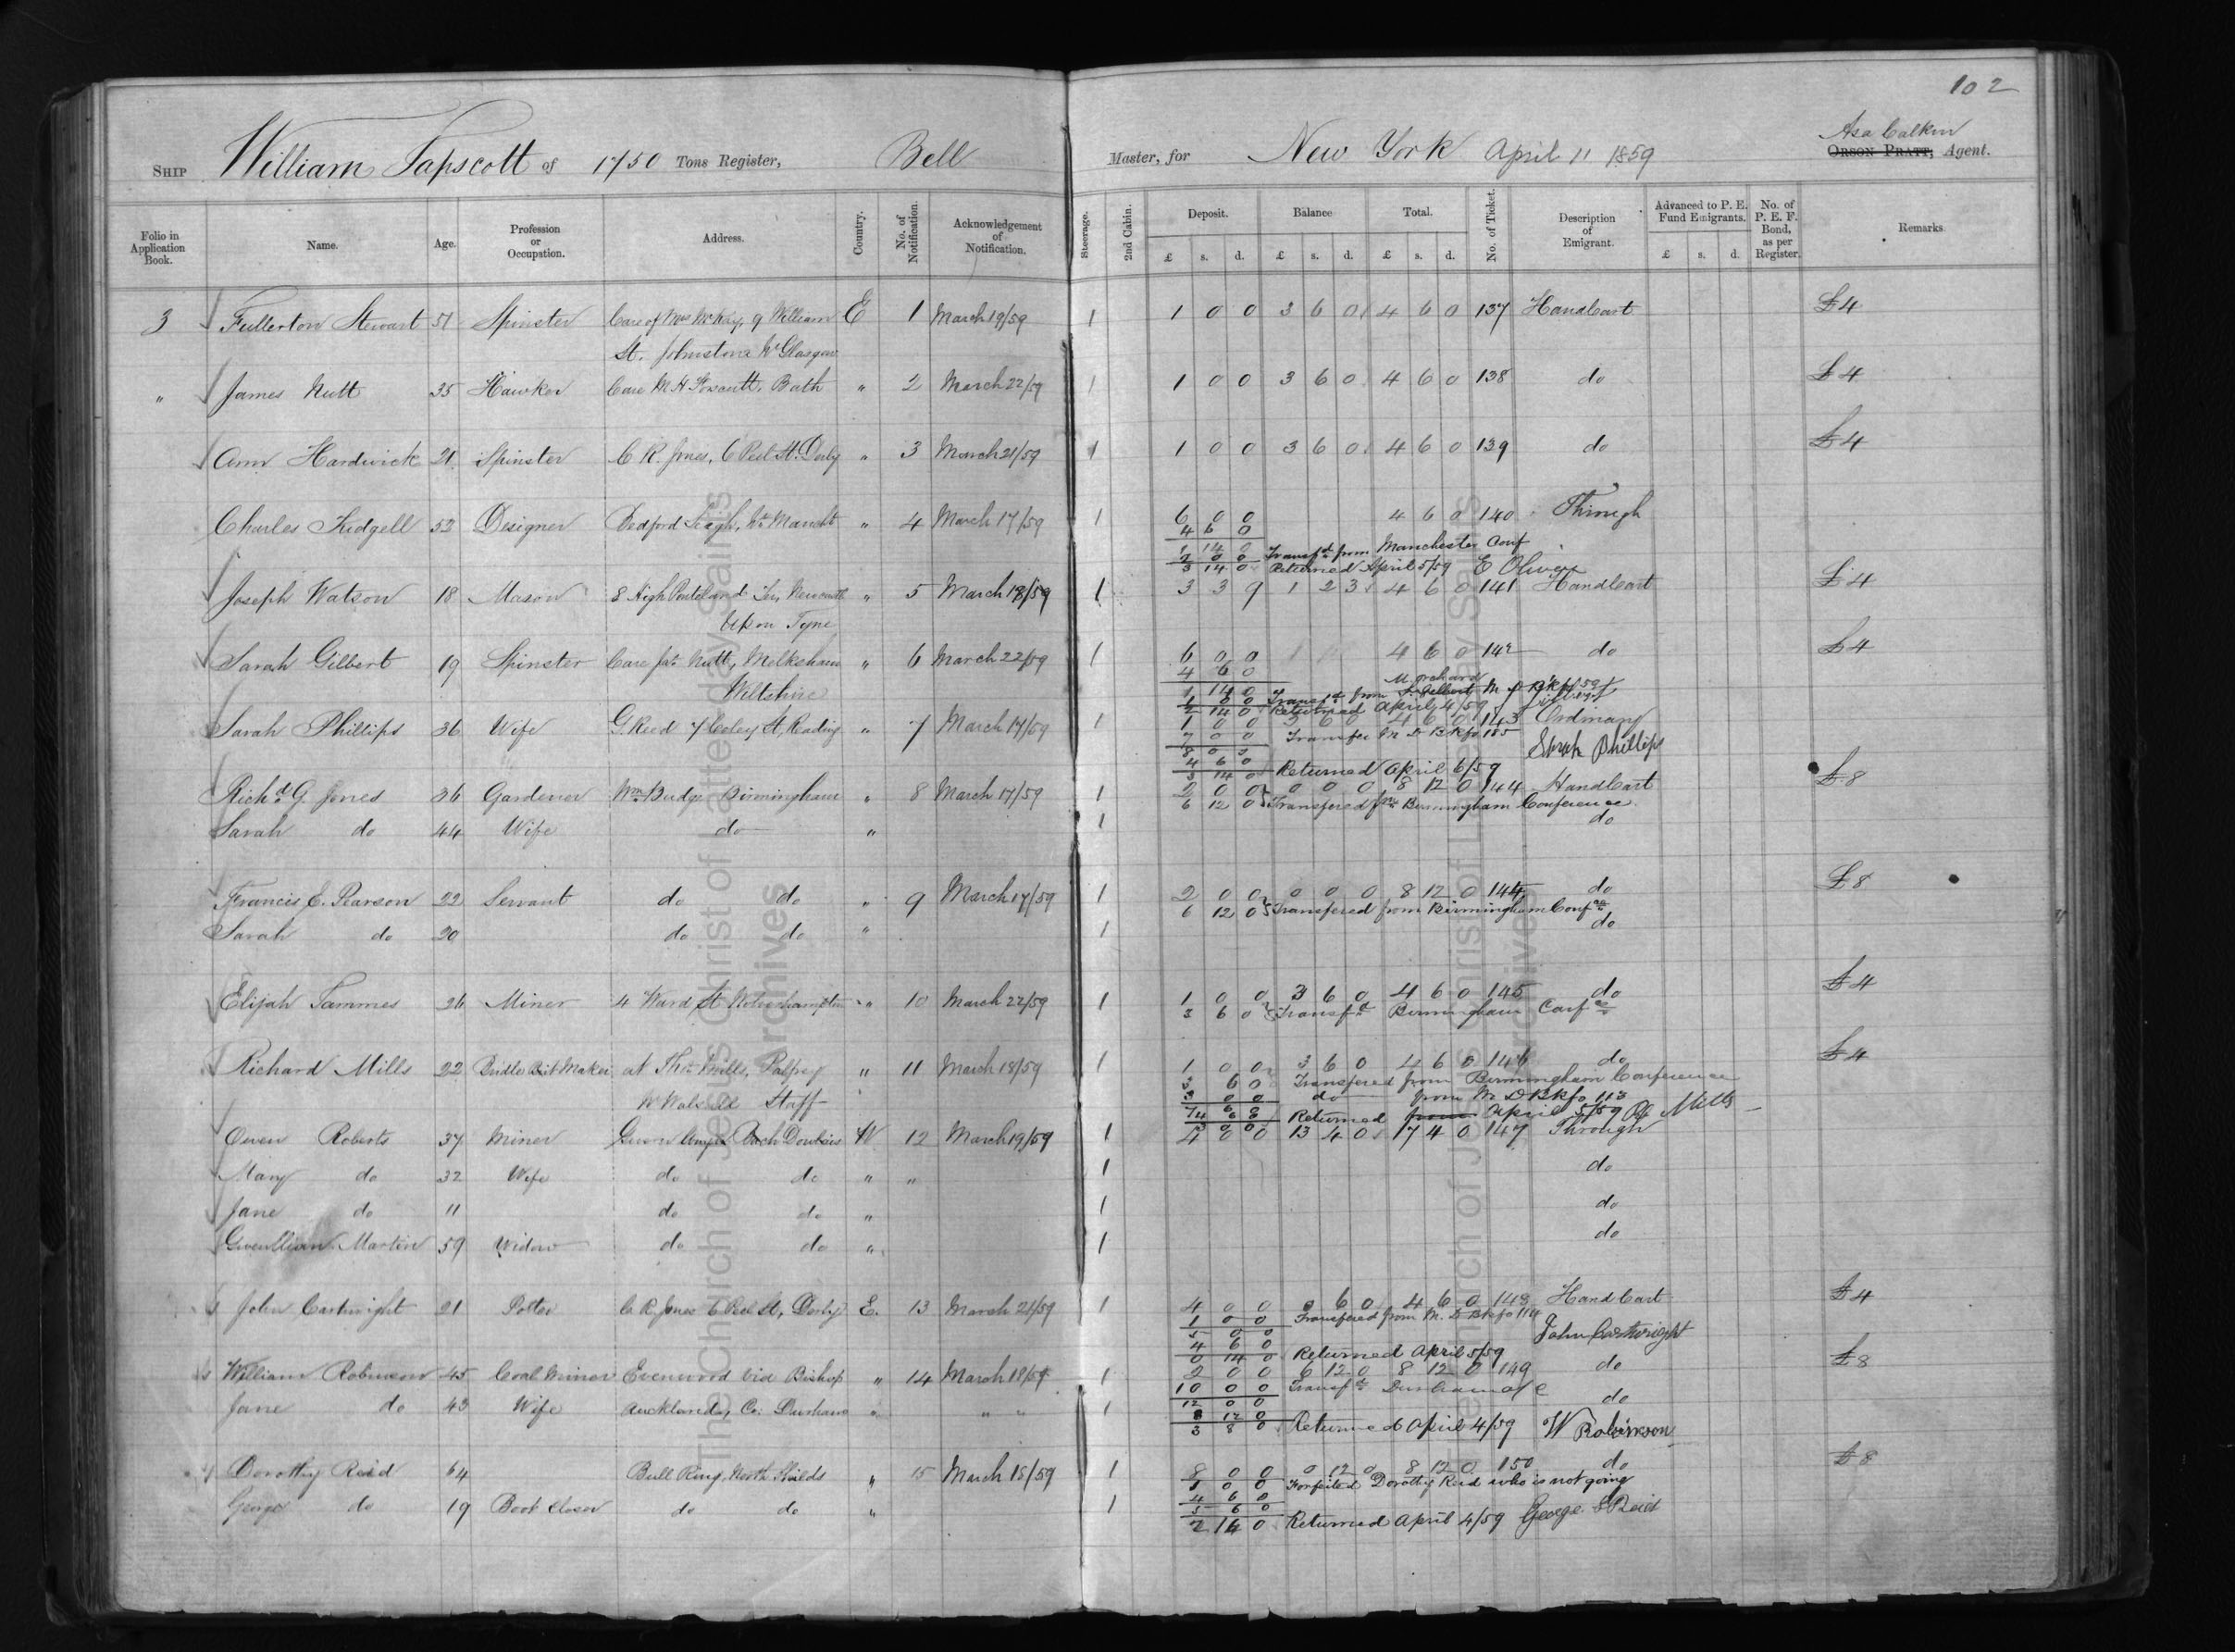 102
Asa Calkin
SHIP William Tapscott of 1750 Tons Register, Bell Master, for New York April 11 1859 ORSON PRATT, Agent.
Folio in Application Book. Name. Age. Profession or Occupation. Address. Country. No. of Notification. Acknowledgement of Notification. Steerage. 2nd Cabin. Deposit. Balance Total. No. of Ticket. Description of Emigrant. Advanced to P. E. Fund Emigrants. No. of P. E. F. Bond, as per Register. Remarks.
£ s. d. £ s. d. £ s. d. £ s. d.
3 Fullerton Stewart 51 Spinster Care of Mrs McKay, 9 William E 1 March 19/59 1 1 0 0 3 6 0 4 6 0 137 Handcart £4
St. Johnstone Nr Glasgow
" James Nutt 35 Hawker Care Bath " 2 March 22/59 1 1 0 0 3 6 0 4 6 0 138 do £4
Ann Hardwick 21 Spinster C. R. Jones, 6 Peel St. Derby " 3 March 21/59 1 1 0 0 3 6 0 4 6 0 139 do £4
Charles Kidgell 52 Designer Bedford Leigh, Nr Mancht " 4 March 17/59 1 6 0 0 4 6 0 140 Through
4 6 0
1 14 0 Transfd from Manchester Conf
2 0 0
3 14 0 Returned April 5/59 E Oliver
Joseph Watson 18 Mason 8 High Newcastle " 5 March 18/59 1 3 3 9 1 2 3 4 6 0 141 Handcart £4
Upon Tyne
Sarah Gilbert 19 Spinster Care Jas Nutt, Melksham " 6 March 22/59 1 6 0 0 4 6 0 142 do £4
Wiltshire
4 6 0
1 14 0 Transfd from
1 0 0
2 14 0 Returned April 4/59
Sarah Phillips 36 Wife G. Reed 7 Coley St, Reading " 7 March 17/59 1 1 0 0 3 6 0 4 6 0 143 Ordinary
7 0 0 Transfer M D Bk fo 185
8 0 0 Sarah Phillips
4 6 0
3 14 0 Returned April 6/59
Richd G. Jones 36 Gardener Wm Budge Birmingham " 8 March 17/59 1 2 0 0 0 0 0 8 12 0 144 Handcart £8
6 12 0 Transfered fm Birmingham Conference
Sarah do 44 Wife do " 1 do
Francis E. Pearson 22 Servant do do " 9 March 17/59 1 2 0 0 0 0 0 8 12 0 144 do £8
6 12 0 Transfered from Birmingham Confce
Sarah do 20 do do " 1 do
Elijah Tammes 26 Miner 4 Ward St Wolverhampton " 10 March 22/59 1 1 0 0 3 6 0 4 6 0 145 do £4
3 6 0 Transfd Birmingham Confce
Richard Mills 22 Bridle Bit Maker at Thos Mills, Palfrey " 11 March 18/59 1 1 0 0 3 6 0 4 6 0 146 do £4
Nr Walsall Staff
3 6 0 Transfered from Birmingham Conference
3 0 0 do from M D Bk fo 113
Returned from April 5/59 Mills
Owen Roberts 37 Miner W 12 March 19/59 1 4 0 0 13 4 0 17 4 0 147 Through
Mary do 32 Wife do do " " 1 do
Jane do 11 do do " 1 do
Gwenllian Martin 59 Widow do do " 1 do
John Cartwright 21 Potter C. R. Jones 6 Peel St, Derby E. 13 March 21/59 1 4 0 0 0 6 0 4 6 0 148 Handcart £4
1 0 0 Transfered from M. D Bk fo 114
5 0 0 John Cartwright
4 6 0
0 14 0 Returned April 5/59
William Robinson 45 Coal Miner Evenwood via Bishop " 14 March 18/59 1 2 0 0 6 12 0 8 12 0 149 do £8
10 0 0 Transfd Durham a/c
Jane do 43 Wife Auckland, Co: Durham " " " 1 12 0 0 do
8 12 0
3 8 0 Returned April 4/59 W Robinson
Dorothy Reid 64 Bull Ring, North Shields " 15 March 18/59 1 8 0 0 0 12 0 8 12 0 150 do £8
1 0 0 Forfeited Dorothy Reid who is not going
George do 19 Boot Closer do do " 1 4 6 0
5 6 0
2 14 0 Returned April 4/59 George S Reid
The Church of Jesus Christ of Latter-day Saints
Archives
The Church of Jesus Christ of Latter-day Saints
Archives